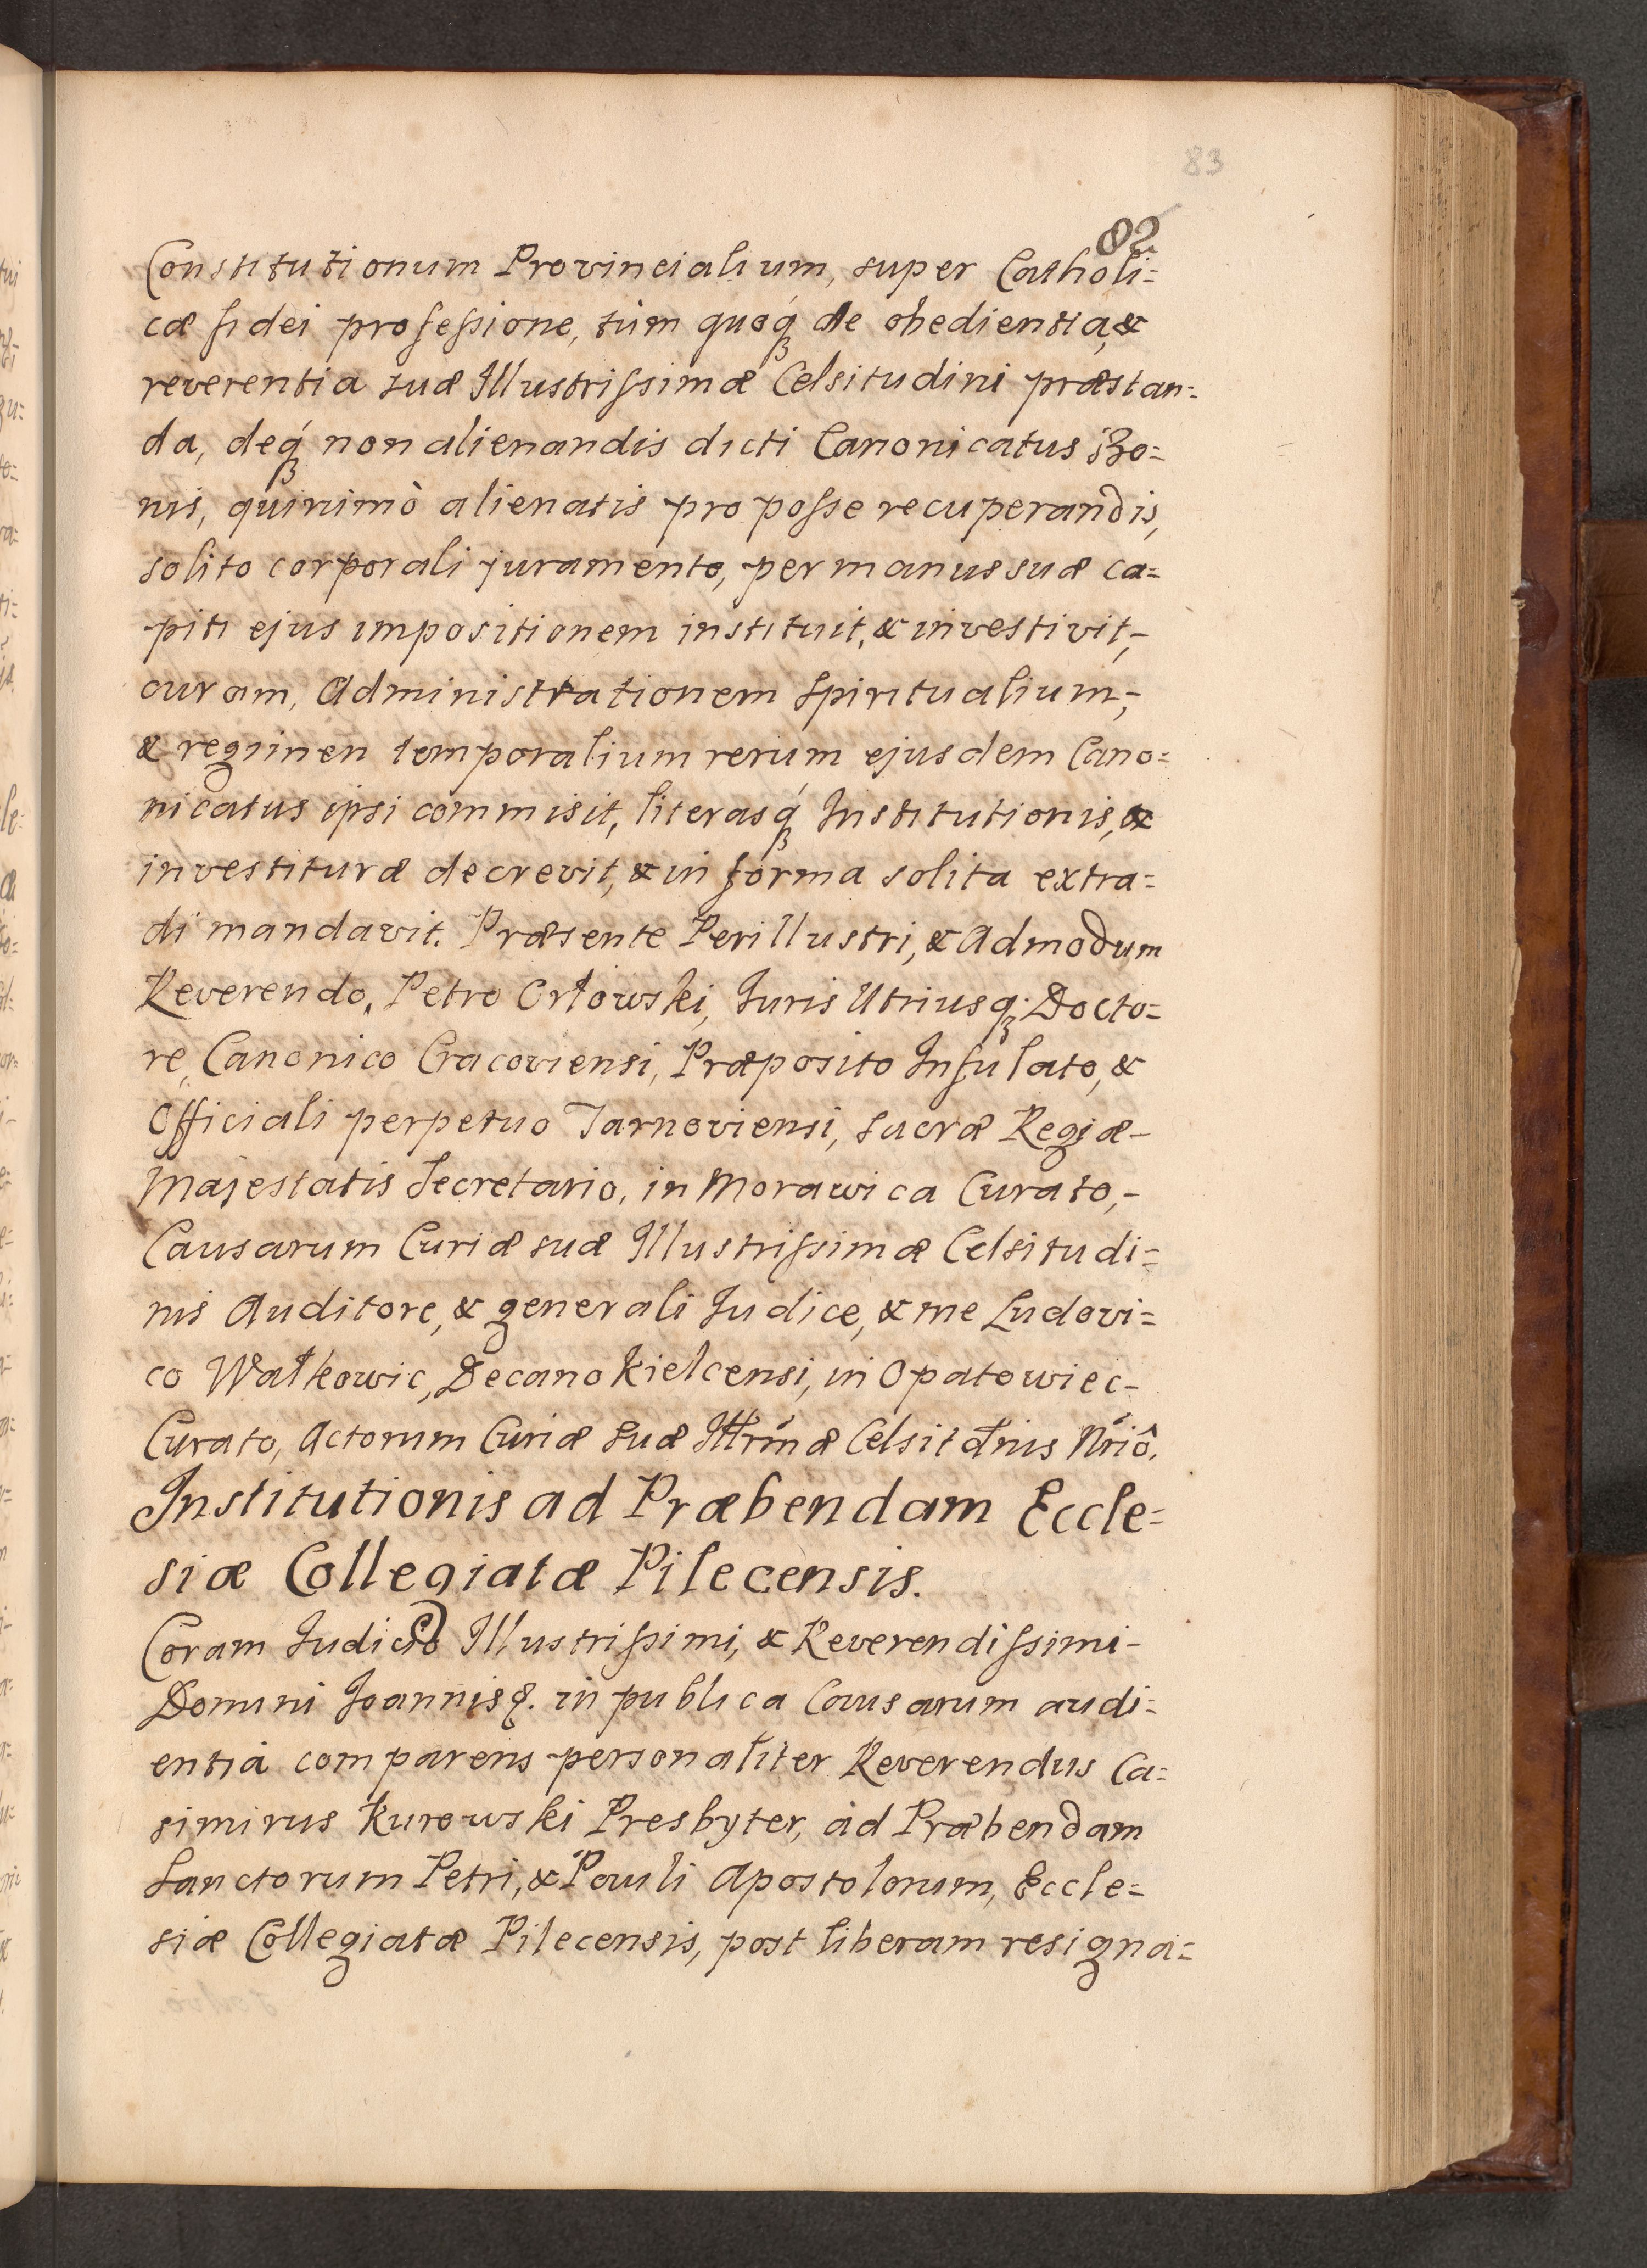 83
82
Constitutionum Provincialium, super Catholi=
cæ fidei professione, tùm quoq́ꝫ de obedientia, &
reverentia suæ Illustrissimæ Celsitudini præstan=
da, deq́ꝫ non alienandis dicti Canonicatus Bo=
nis, quinimò alienatis pro posse recuperandis,
solito corporali juramento, per manus suæ ca=
piti ejus impositionem instituit, & investivit,-
curam, Administrationem Spiritualium,-
& regimen temporalium rerum ejusdem Cano=
nicatus ipsi commisit, literasq́ꝫ Institutionis, &
investituræ decrevit, & in forma solita extra=
di mandavit. Præsente Perillustri, & Admodum
Reverendo, Petro Orłowski, Juris Utriusqꝫ Docto=
re, Canonico Cracoviensi, Præposito Infulato, &
Officiali perpetuo Tarnoviensi, Sacræ Regiæ-
Majestatis Secretario, in Morawica Curato,-
Causarum Curiæ suæ Illustrissimæ Celsitudi=
nis Auditore, & generali Judice, & me Ludovi=
co Wałkowic, Decano Kielcensi, in Opatowiec-
Curato, Actorum Curiæ suæ Illrmæ Celsitdnis Nriô.
Institutionis ad Præbendam Eccle=
siæ Collegiatæ Pilecensis.
Coram Judicio Illustrissimi, & Reverendissimi-
Domini Joannis &. in publica Causarum audi=
entia comparens personaliter Reverendus Ca=
simirus Kurowski Presbyter, ad Præbendam
Sanctorum Petri, & Pauli Apostolorum, Eccle=
siæ Collegiatæ Pilecensis, post liberam resigna=